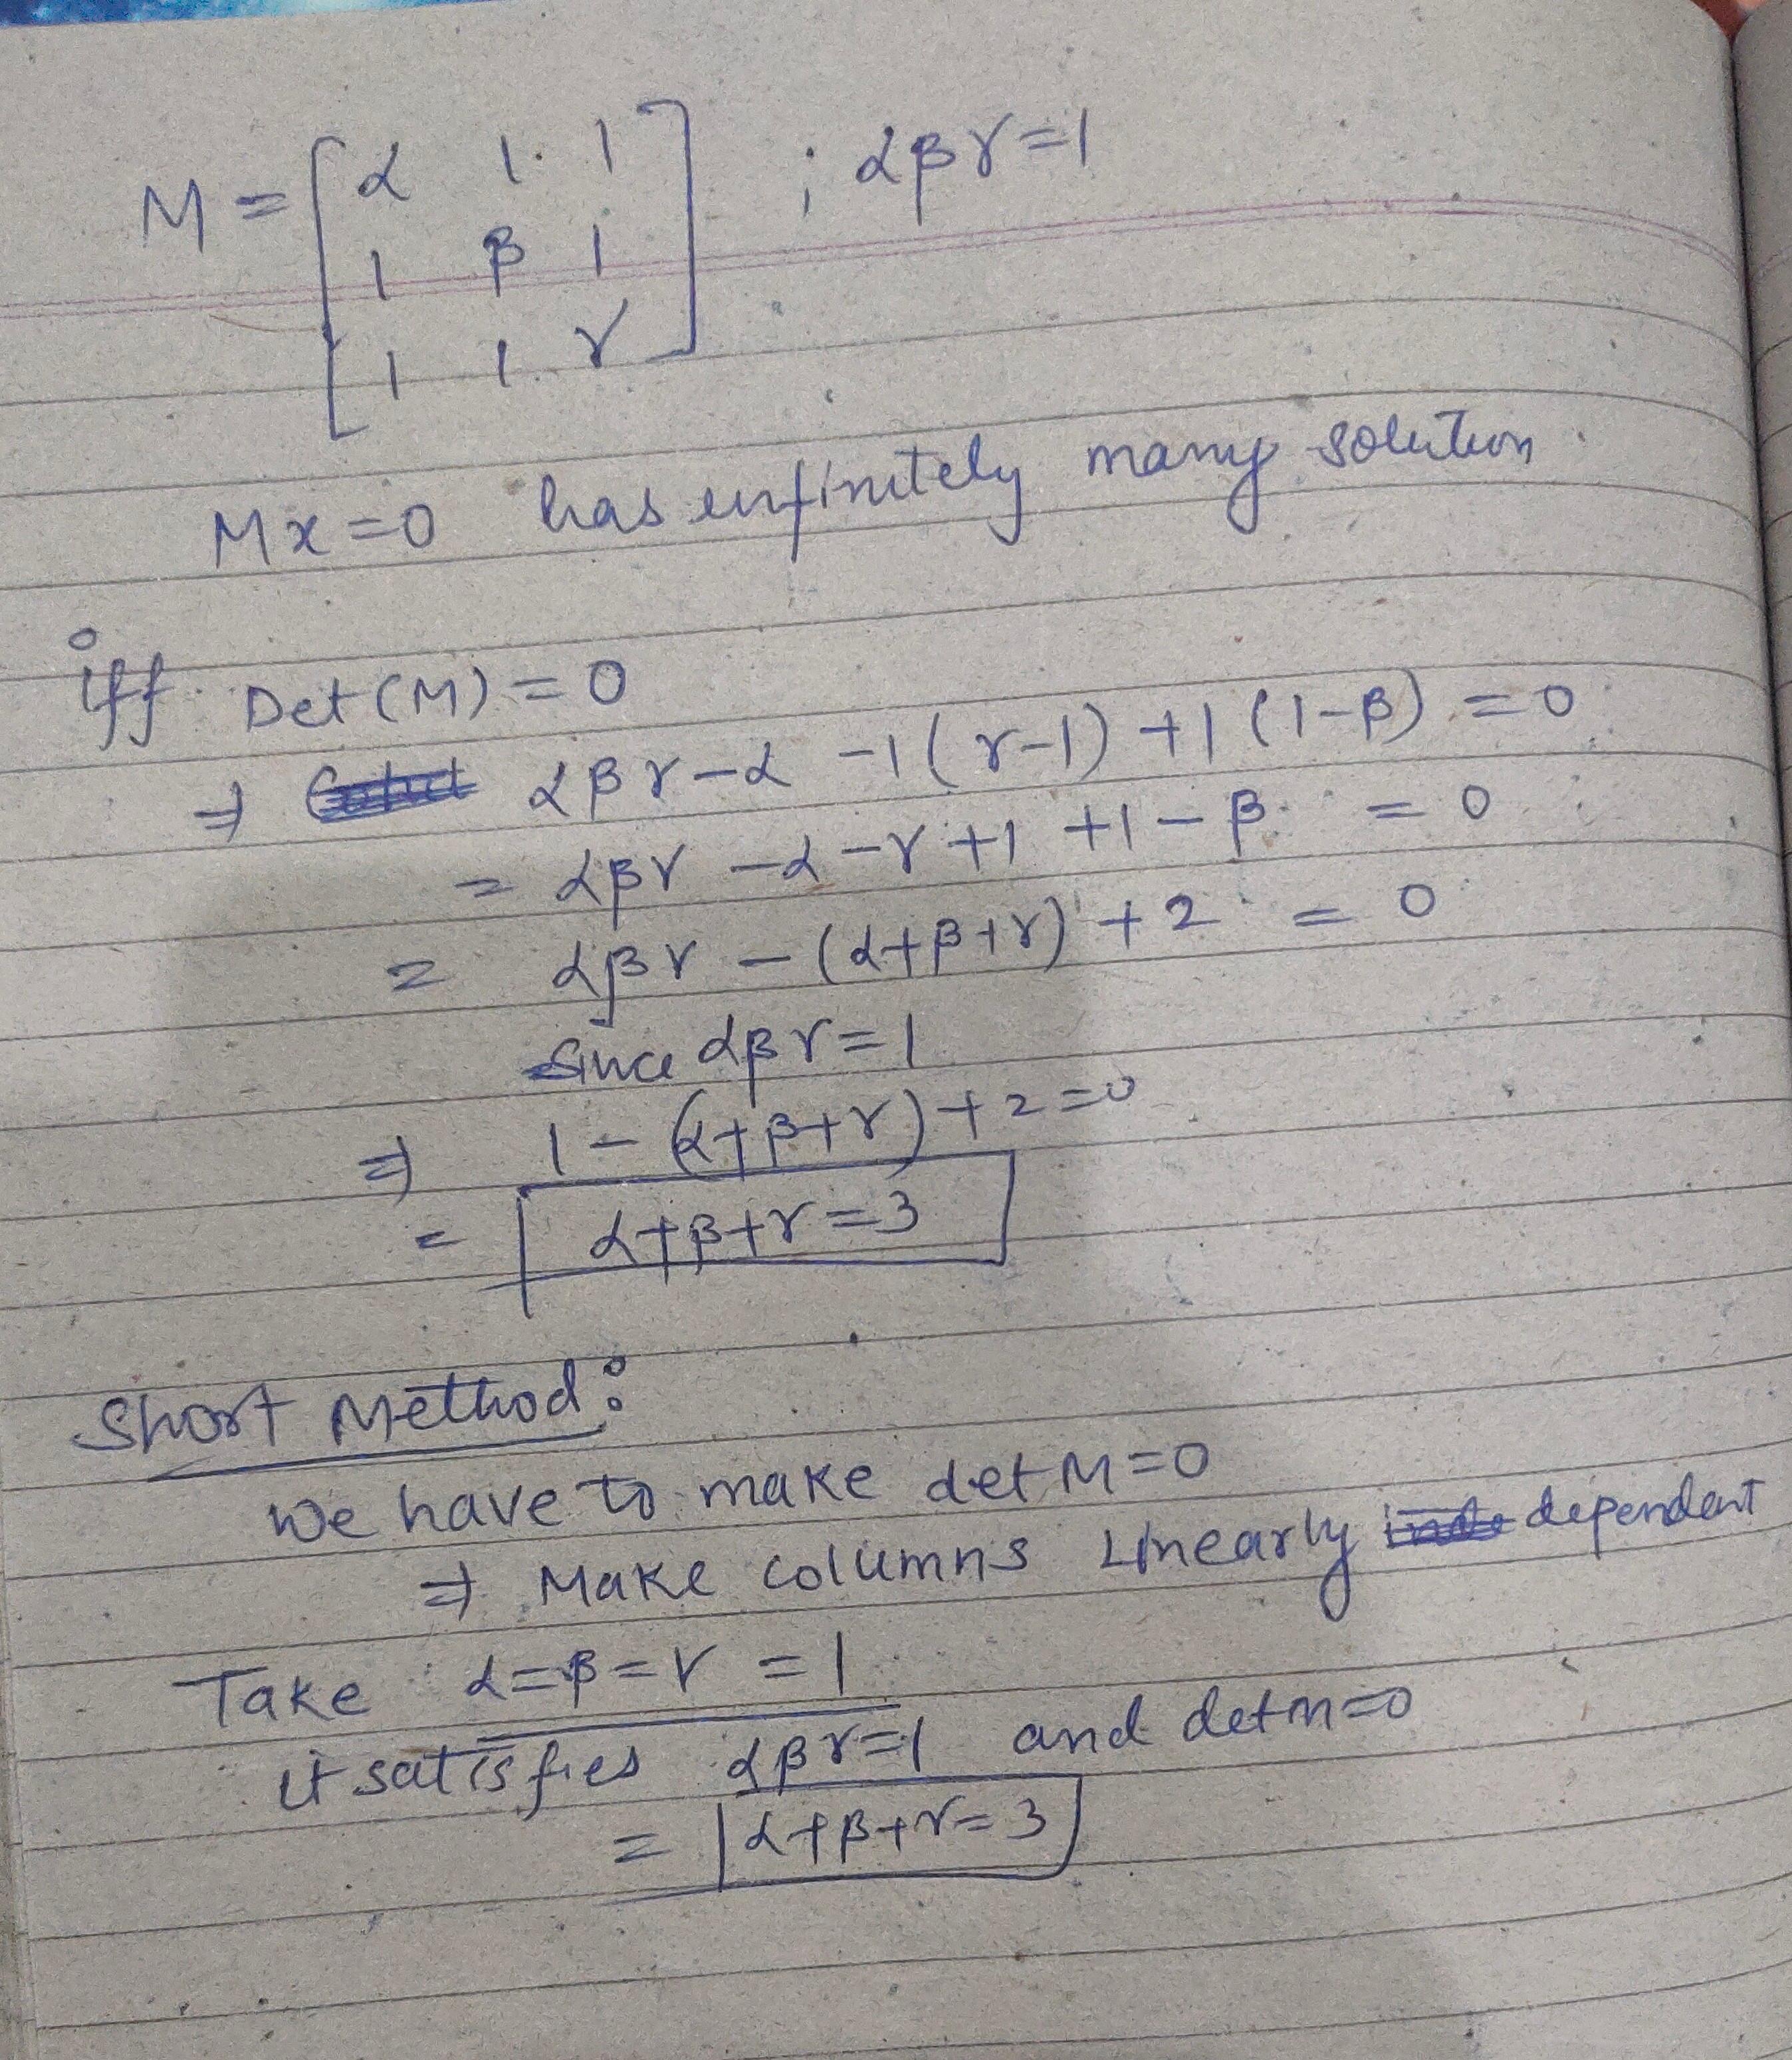 M = [ α 1 1 ] ; αβγ=1
1 β 1
1 1 γ
Mx=0 has infinitely many solution
iff Det(M) = 0
⇒ αβγ-α -1(γ-1) +1(1-β) =0
= αβγ -α-γ+1 +1-β = 0
= αβγ -(α+β+γ) +2 = 0
Since αβγ=1
⇒ 1-(α+β+γ)+2=0
= α+β+γ=3
Short Method:
We have to make det M=0
⇒ Make columns Linearly dependent
Take α=β=γ =1
it satisfies αβγ=1 and detm=0
= α+β+γ=3